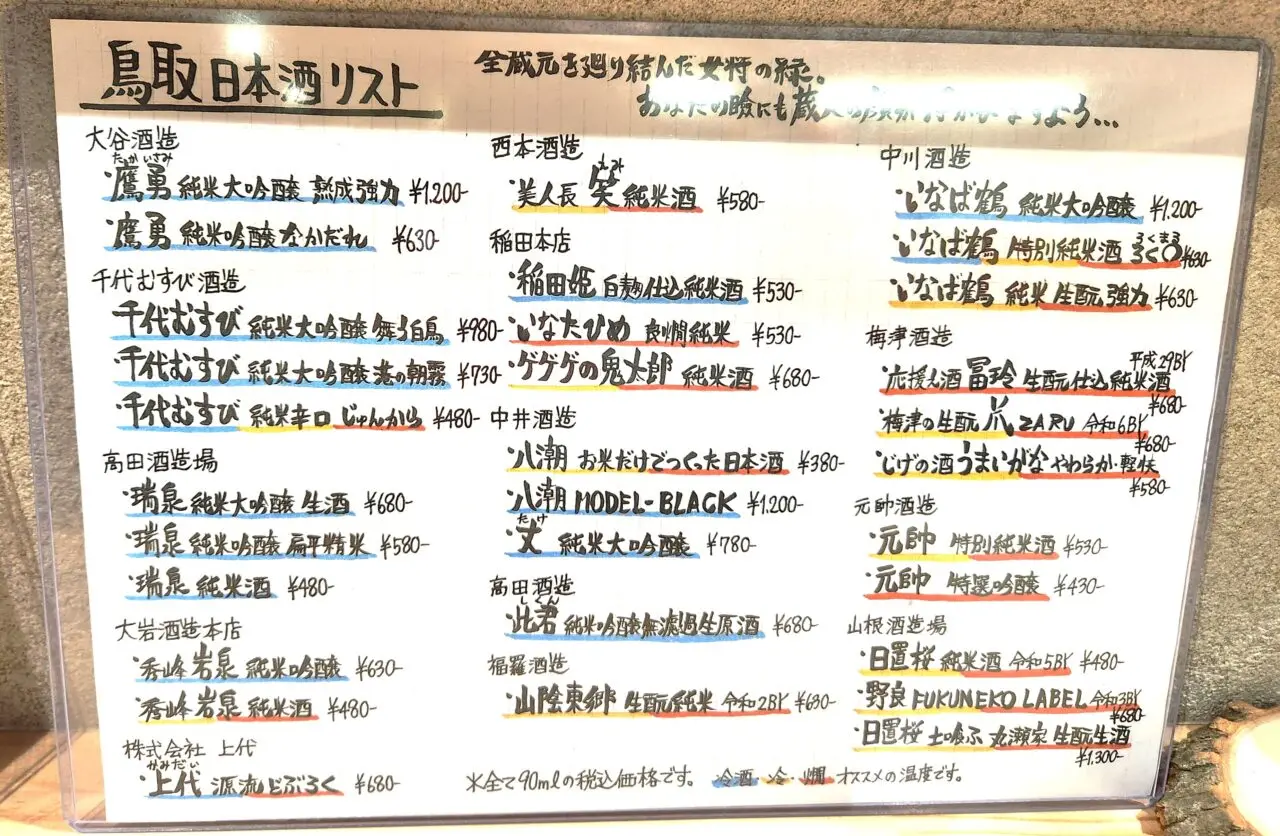 鳥取日本酒リスト
全蔵元を廻り結んだ女将の縁。
あなたの瞼にも蔵人の
ますよう...
大谷酒造
たかいさみ
・鷹勇 純米大吟醸 熟成強力 ¥1,200-
・鷹勇 純米吟醸 なかだれ ¥630-
千代むすび酒造
・千代むすび 純米大吟醸 舞う白鳥 ¥980-
・千代むすび 純米大吟醸 港の朝霧 ¥730-
・千代むすび 純米辛口 じゅんから ¥480-
高田酒造場
・瑞泉 純米大吟醸 生酒 ¥680-
・瑞泉 純米吟醸 扁平精米 ¥580-
・瑞泉 純米酒 ¥480-
大岩酒造本店
・秀峰岩泉 純米吟醸 ¥630-
・秀峰岩泉 純米酒 ¥480-
株式会社 上代
かみだい
・上代 源流どぶろく ¥680-
西本酒造
えみ
・美人長 笑 純米酒 ¥580-
稲田本店
・稲田姫 白麹仕込純米酒 ¥530-
・いなたひめ 良燗純米 ¥530-
・ゲゲゲの鬼太郎 純米酒 ¥680-
中井酒造
・八潮 お米だけでつくった日本酒 ¥380-
・八潮 MODEL-BLACK ¥1,200-
たけ
・丈 純米大吟醸 ¥780-
高田酒造
しくん
・此君 純米吟醸無濾過生原酒 ¥680-
福羅酒造
・山陰東郷 生酛純米 令和2BY ¥630-
中川酒造
・いなば鶴 純米大吟醸 ¥1,200-
ろくまる
・いなば鶴 特別純米酒 ろく〇 ¥630-
・いなば鶴 純米 生酛 強力 ¥630-
梅津酒造
平成29BY
・応援え酒 冨玲 生酛仕込純米酒
¥680-
・梅津の生酛 笊 ZARU 令和6BY
¥680-
・じげの酒 うまいがな やわらか・軽快
¥580-
元帥酒造
・元帥 特別純米酒 ¥530-
・元帥 特選吟醸 ¥430-
山根酒造場
・日置桜 純米酒 令和5BY ¥480-
・野良 FUKUNEKO LABEL 令和3BY
¥680-
・日置桜 土喰ふ 丸瀬家 生酛生酒
¥1,300-
※全て90mlの税込価格です。 冷酒・冷・燗 オススメの温度です。